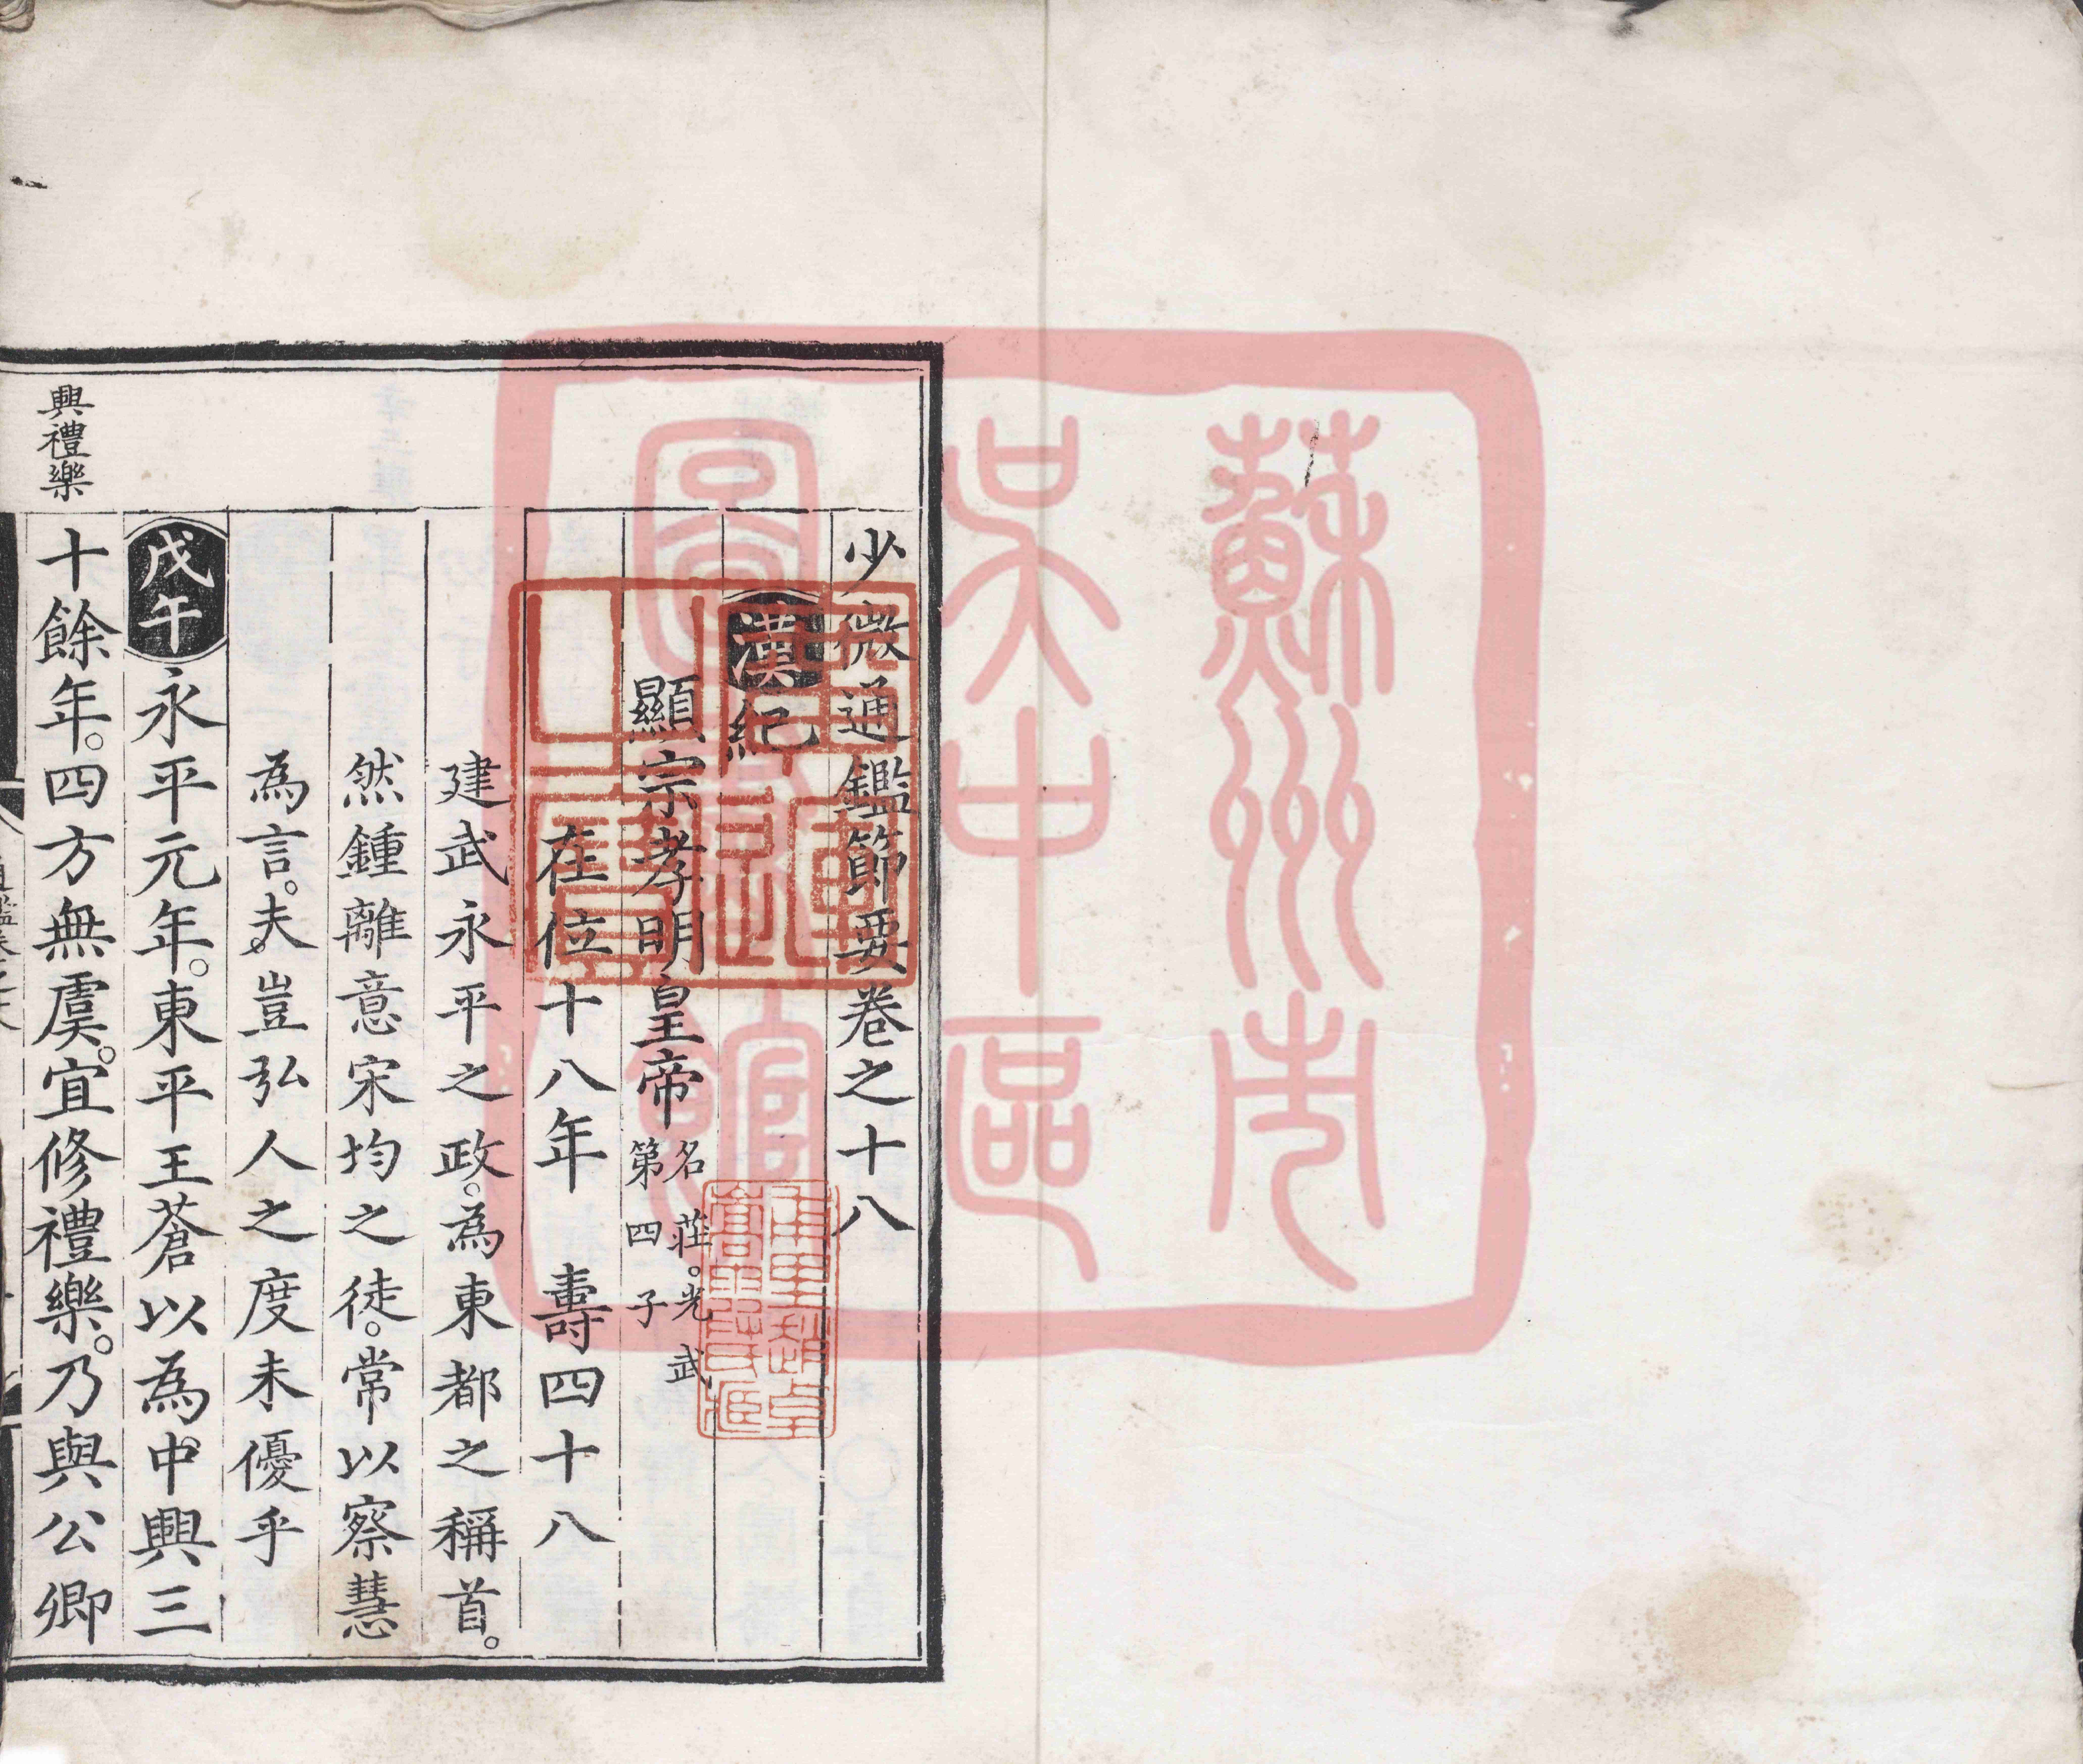 少微通鑑節要卷之十八
漢紀
顯宗孝明皇帝 名莊。光武第四子
在位十八年 壽四十八
建武永平之政。為東都之稱首。
然鍾離意宋均之徒。常以察慧
為言。夫。豈弘人之度未優乎
戊午 永平元年。東平王蒼以為中興三
興禮樂
十餘年。四方無虞。宜修禮樂。乃與公卿
蘇州市
吳中區
圖書館